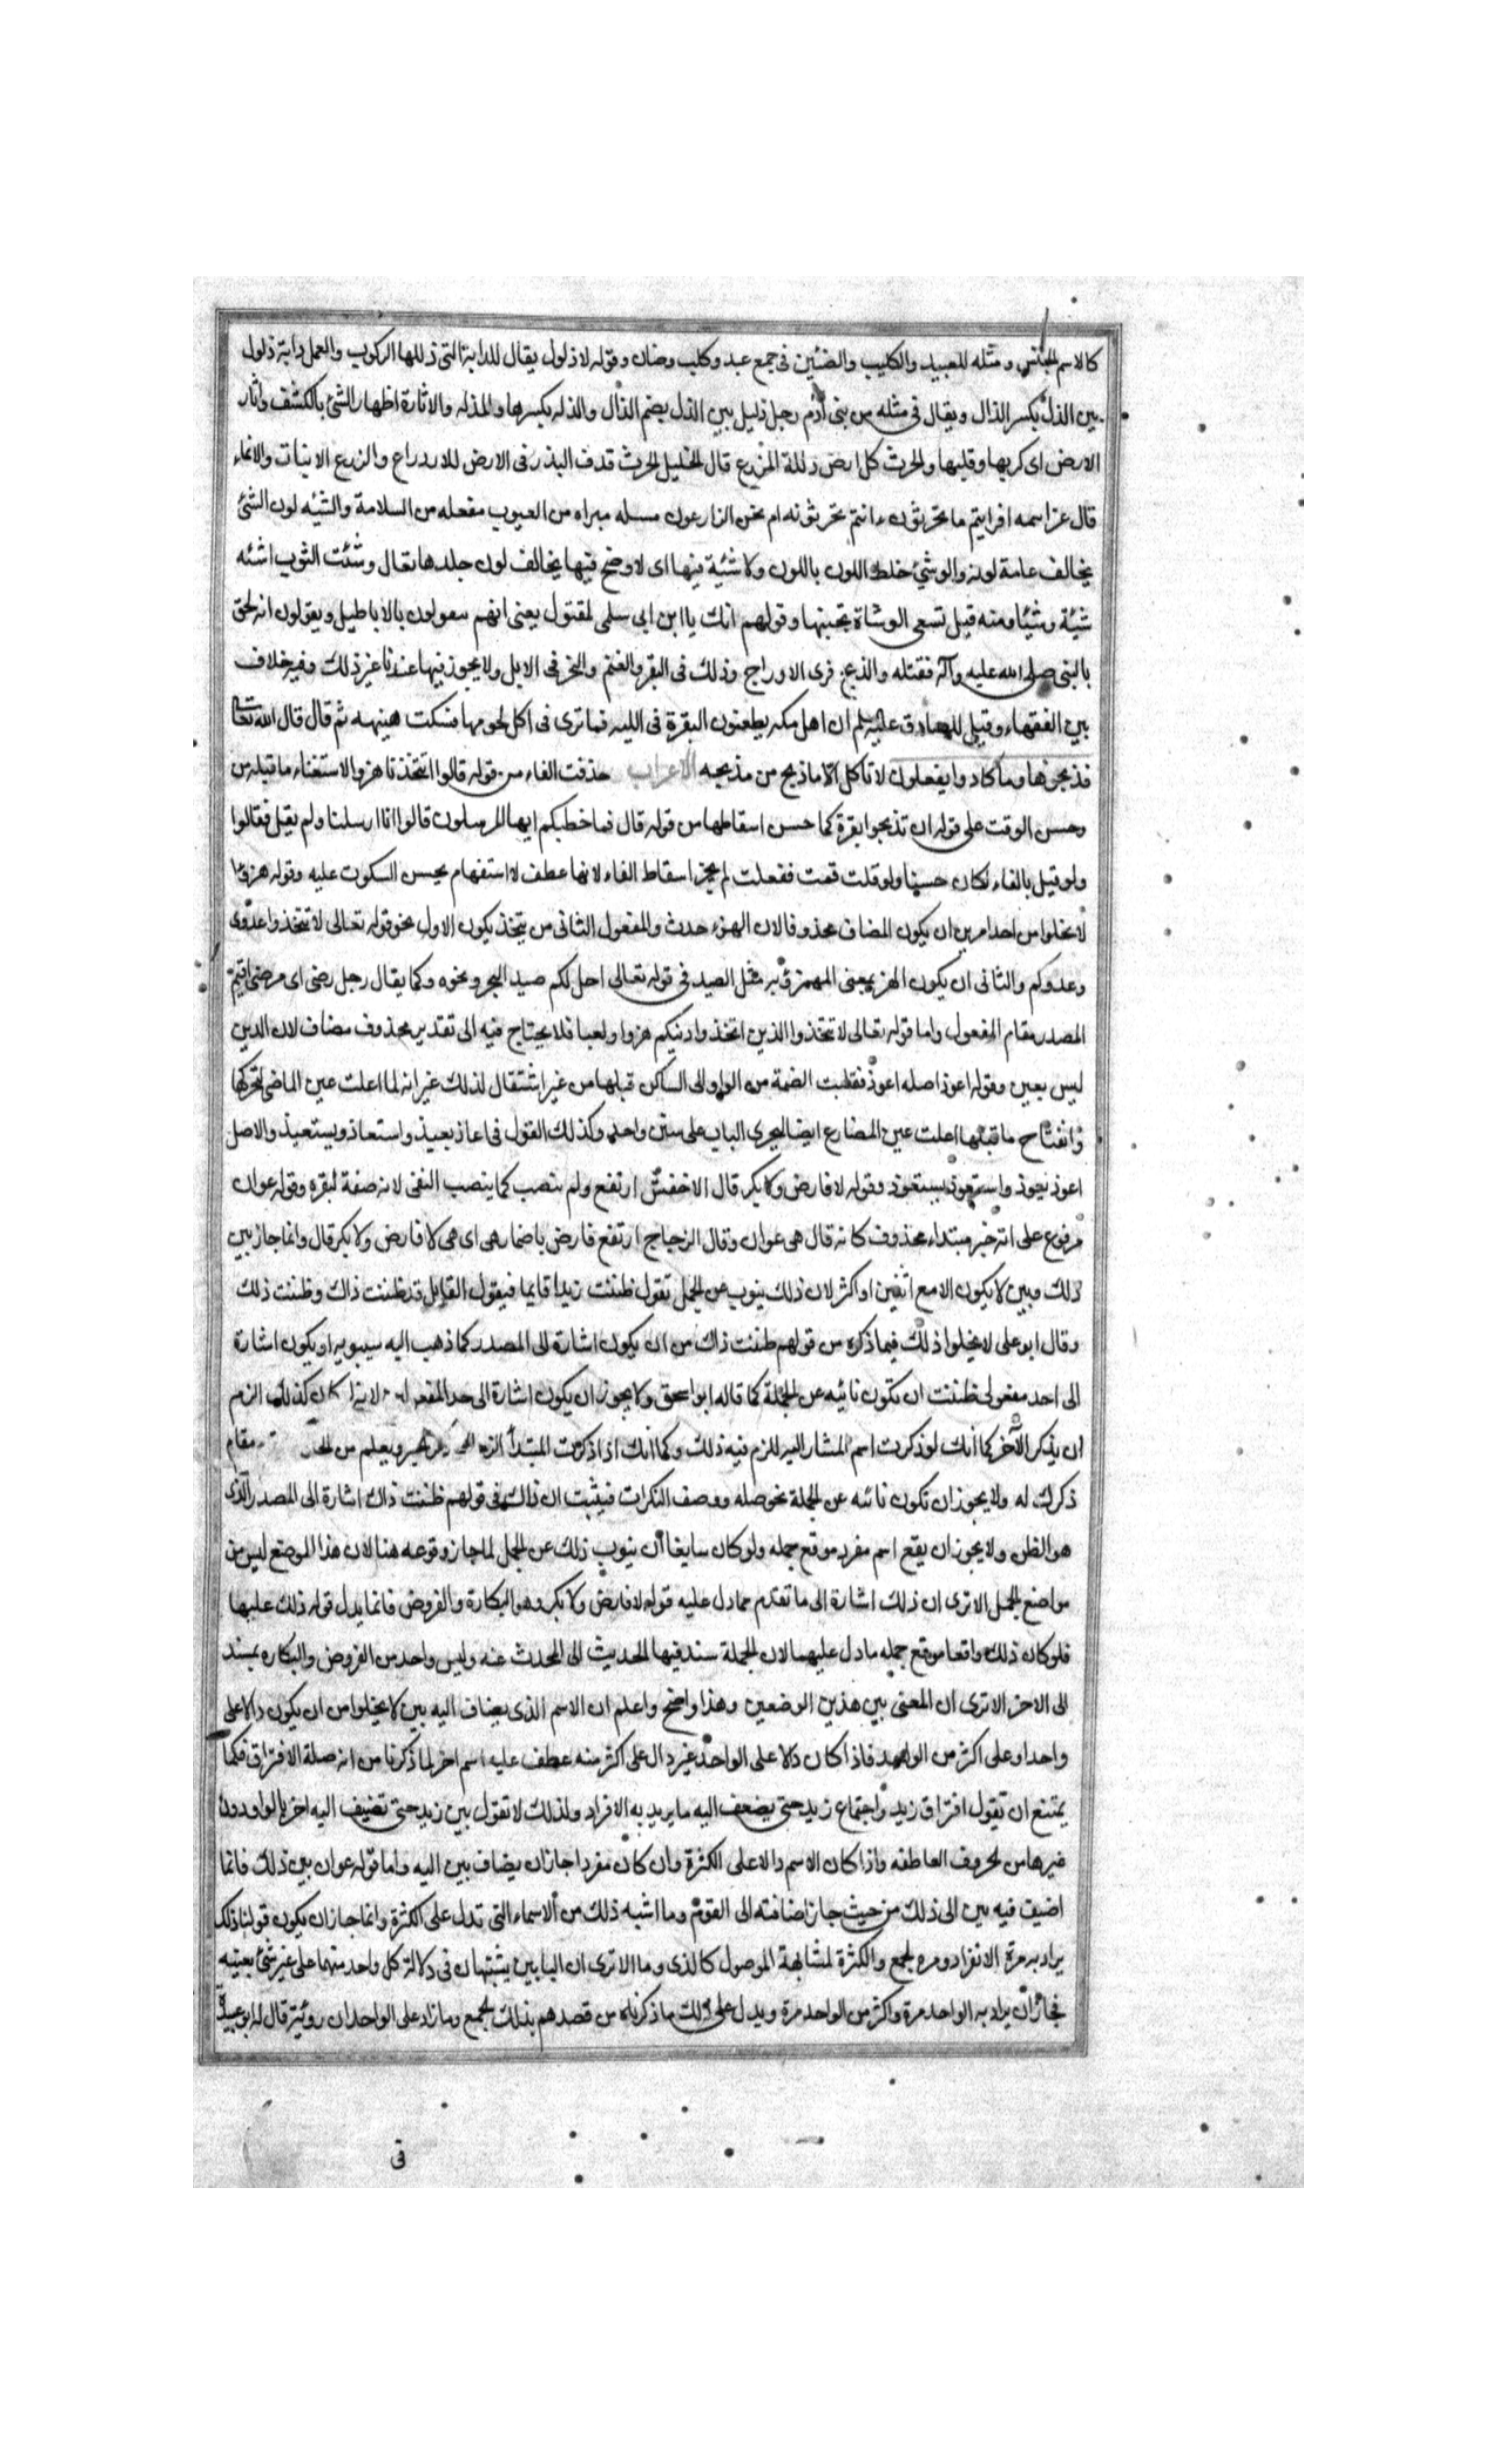 كالاسم الجنس ومثله للعبيد والكليب والضئين فى جمع عبد وكلب وضان وقوله لا ذلول يقال للدابة التى ذللها الركوب والعمل دابة ذلول
بين الذل بكسر الذال ويقال فى مثله من بنى آدم رجل ذليل بين الذل بضم الذال والذله بكسرها والمذله والاثارة اظهار الشئ بالكشف واثار
الارض اى كربها وقلبها والحرث كل ارض ذللة المزرع قال الخليل الحرث قذف البذر فى الارض للازدراع والزرع الانبات والانماء
قال عز اسمه افرايتم ما تحرثون ءانتم تحرثونه ام نحن الزارعون مسلمه مبراه من العيوب مفعله من السلامة والشيه لون الشئ
يخالف عامة لونه والوشئ خلط اللون باللون ولا شية فيها اى لا وضح فيها يخالف لون جلدها يقال وشئت الثوب اشئه
شيئة وشئيا ومنه قيل تسعى الوشاة بجنبها وقولهم انك يا ابن ابى سلمى لمقتول يعنى انهم يتقولون بالاباطيل ويقولون انه لحق
بالنبى صلى الله عليه وآله فقتله والذبح فرى الاوداج وذلك فى البقر والغنم والنحر فى الابل ولا يجوز فيها عندنا غير ذلك وفيه خلاف
بين الفقهاء وقيل للصادق عليه السلم ان اهل مكه يطعنون البقرة فى اللبه فما ترى فى اكل لحومها فسكت هنيهه ثم قال قال الله تعالى
فذبحوها وما كادوا يفعلون لا تاكل الا ما ذبح من مذبحه الاعراب حذفت الفاء من قوله قالوا اتتخذنا هزوا لاستغناء ما قبله من
وحسن الوقت على قوله ان تذبحوا بقرة كما حسن اسقاطها من قوله قال فما خطبكم ايها المرسلون قالوا انا ارسلنا ولم يقل فقالوا
ولو قيل بالفاء لكان حسنا ولو قلت قمت ففعلت لم يجز اسقاط الفاء لانها عطف لا استفهام يحسن السكوت عليه وقوله هزوا
لا يخلوا من احد امرين ان يكون المضاف محذوفا لان الهزء حدث والمفعول الثانى من يتخذ يكون الاول نحو قوله تعالى لا تتخذوا عدوى
وعدوكم والثانى ان يكون الهزء بمعنى المهمزؤ به مثل الصيد فى قوله تعالى احل لكم صيد البحر ونحوه وكما يقال رجل رضى اى مرضى اقيم
المصدر مقام المفعول واما قوله تعالى لا تتخذوا الذين اتخذوا دينكم هزوا ولعبا فلا يحتاج فيه الى تقدير محذوف مضاف لان الدين
ليس بعين وقوله اعوذ اصله اعوذ فنقلت الضمة من الواو الى الساكن قبلها من غير اشتقال لذلك غير انه لما اعلت عين الماضى لتحركها
وانفتاح ما قبلها اعلت عين المضارع ايضا ليجرى الباب على سنن واحد وكذلك القول فى اعاذ يعيذ واستعاذ ويستعيذ والاصل
اعوذ يعوذ واستعوذ يستعوذ وقوله لا فارض ولا بكر قال الاخفش ارتفع ولم ينصب كما ينصب النفى لانه صفة لبقره وقوله عوان
مرفوع على انه خبر مبتداء محذوف كانه قال هى عوان وقال الزجاج ارتفع فارض باضمار هى اى هى لا فارض ولا بكر قال وانما جاز بين
ذلك وبين لا يكون الا مع اثنين او اكثر لان ذلك ينوب عن الجمل تقول ظننت زيدا قايما فيقول القايل قد ظننت ذاك وظننت ذلك
وقال ابو على لا يخلوا ذلك فيما ذكره من قولهم ظننت ذاك من ان يكون اشارة الى المصدر كما ذهب اليه سيبويه او يكون اشارة
الى احد مفعولى ظننت ان يكون نائبه عن الجملة كما قاله ابو اسحق ولا يجوز ان يكون اشارة الى احد المفعولين لانه لو كان كذلك لزم
ان يذكر الآخر كما انك لو ذكرت اسم المشار اليه للزم فيه ذلك وكما انك اذا ذكرت المبتدأ لزم ويعلم من مقام
ذكرك له ولا يجوز ان تكون نائبه عن الجملة نحو صله ووصف النكرات فيثبت ان ذلك فى قولهم ظننت ذاك اشارة الى المصدر الذى
هو الظن ولا يجوز ان يقع اسم مفرد موقع جمله ولو كان سايغا ان ينوب ذلك عن الجمل لما جاز وقوعه هنا لان هذا الموضع ليس من
مواضع الجمل الا ترى ان ذلك اشارة الى ما تقدم مما دل عليه قوله لا فارض ولا بكر وهو البكارة والفروض فانما يدل قوله ذلك عليها
فلو كان ذلك واقعا موقع جمله ما دل عليهما لان الجملة سند فيها الحديث الى المحدث عنه وليس واحد من الفروض والبكاره بمسند
الى الاخر الا ترى ان المعنى بين هذين الوضعين وهذا واضح واعلم ان الاسم الذى يضاف اليه بين لا يخلوا من ان يكون دالا على
واحد او على اكثر من الواحد فاذا كان دالا على الواحد غير دال على اكثر منه عطف عليه اسم اخر لما ذكرنا من انه صلة الافتراق فكما
يمتنع ان تقول افتراق زيد واجتماع زيد حتى يضعف اليه ما يريد به الافراد ولذلك لا تقول بين زيد حتى تضيف اليه اخر بالواو دون
غيرها من الحروف العاطفه واذا كان الاسم دالا على الكثرة وان كان مفردا جاز ان يضاف بين اليه واما قوله عوان بين ذلك فانما
اضيف فيه بين الى ذلك من حيث جاز اضافته الى القوم وما اشبه ذلك من الاسماء التى تدل على الكثرة وانما جاز ان يكون قولنا ذلك
يراد به مرة الانفراد ومره الجمع والكثرة لمشابهة الموصول كالذى وما الا ترى ان البابين يشتبهان فى دلالة كل واحد منهما على غير شئ بعينه
فجاز ان يراد به الواحد مرة واكثر من الواحد مرة ويدل على ذلك ما ذكرناه من قصدهم بذلك الجمع وما زاد على الواحد ان روئبة قال له ابو عبيدة
فى